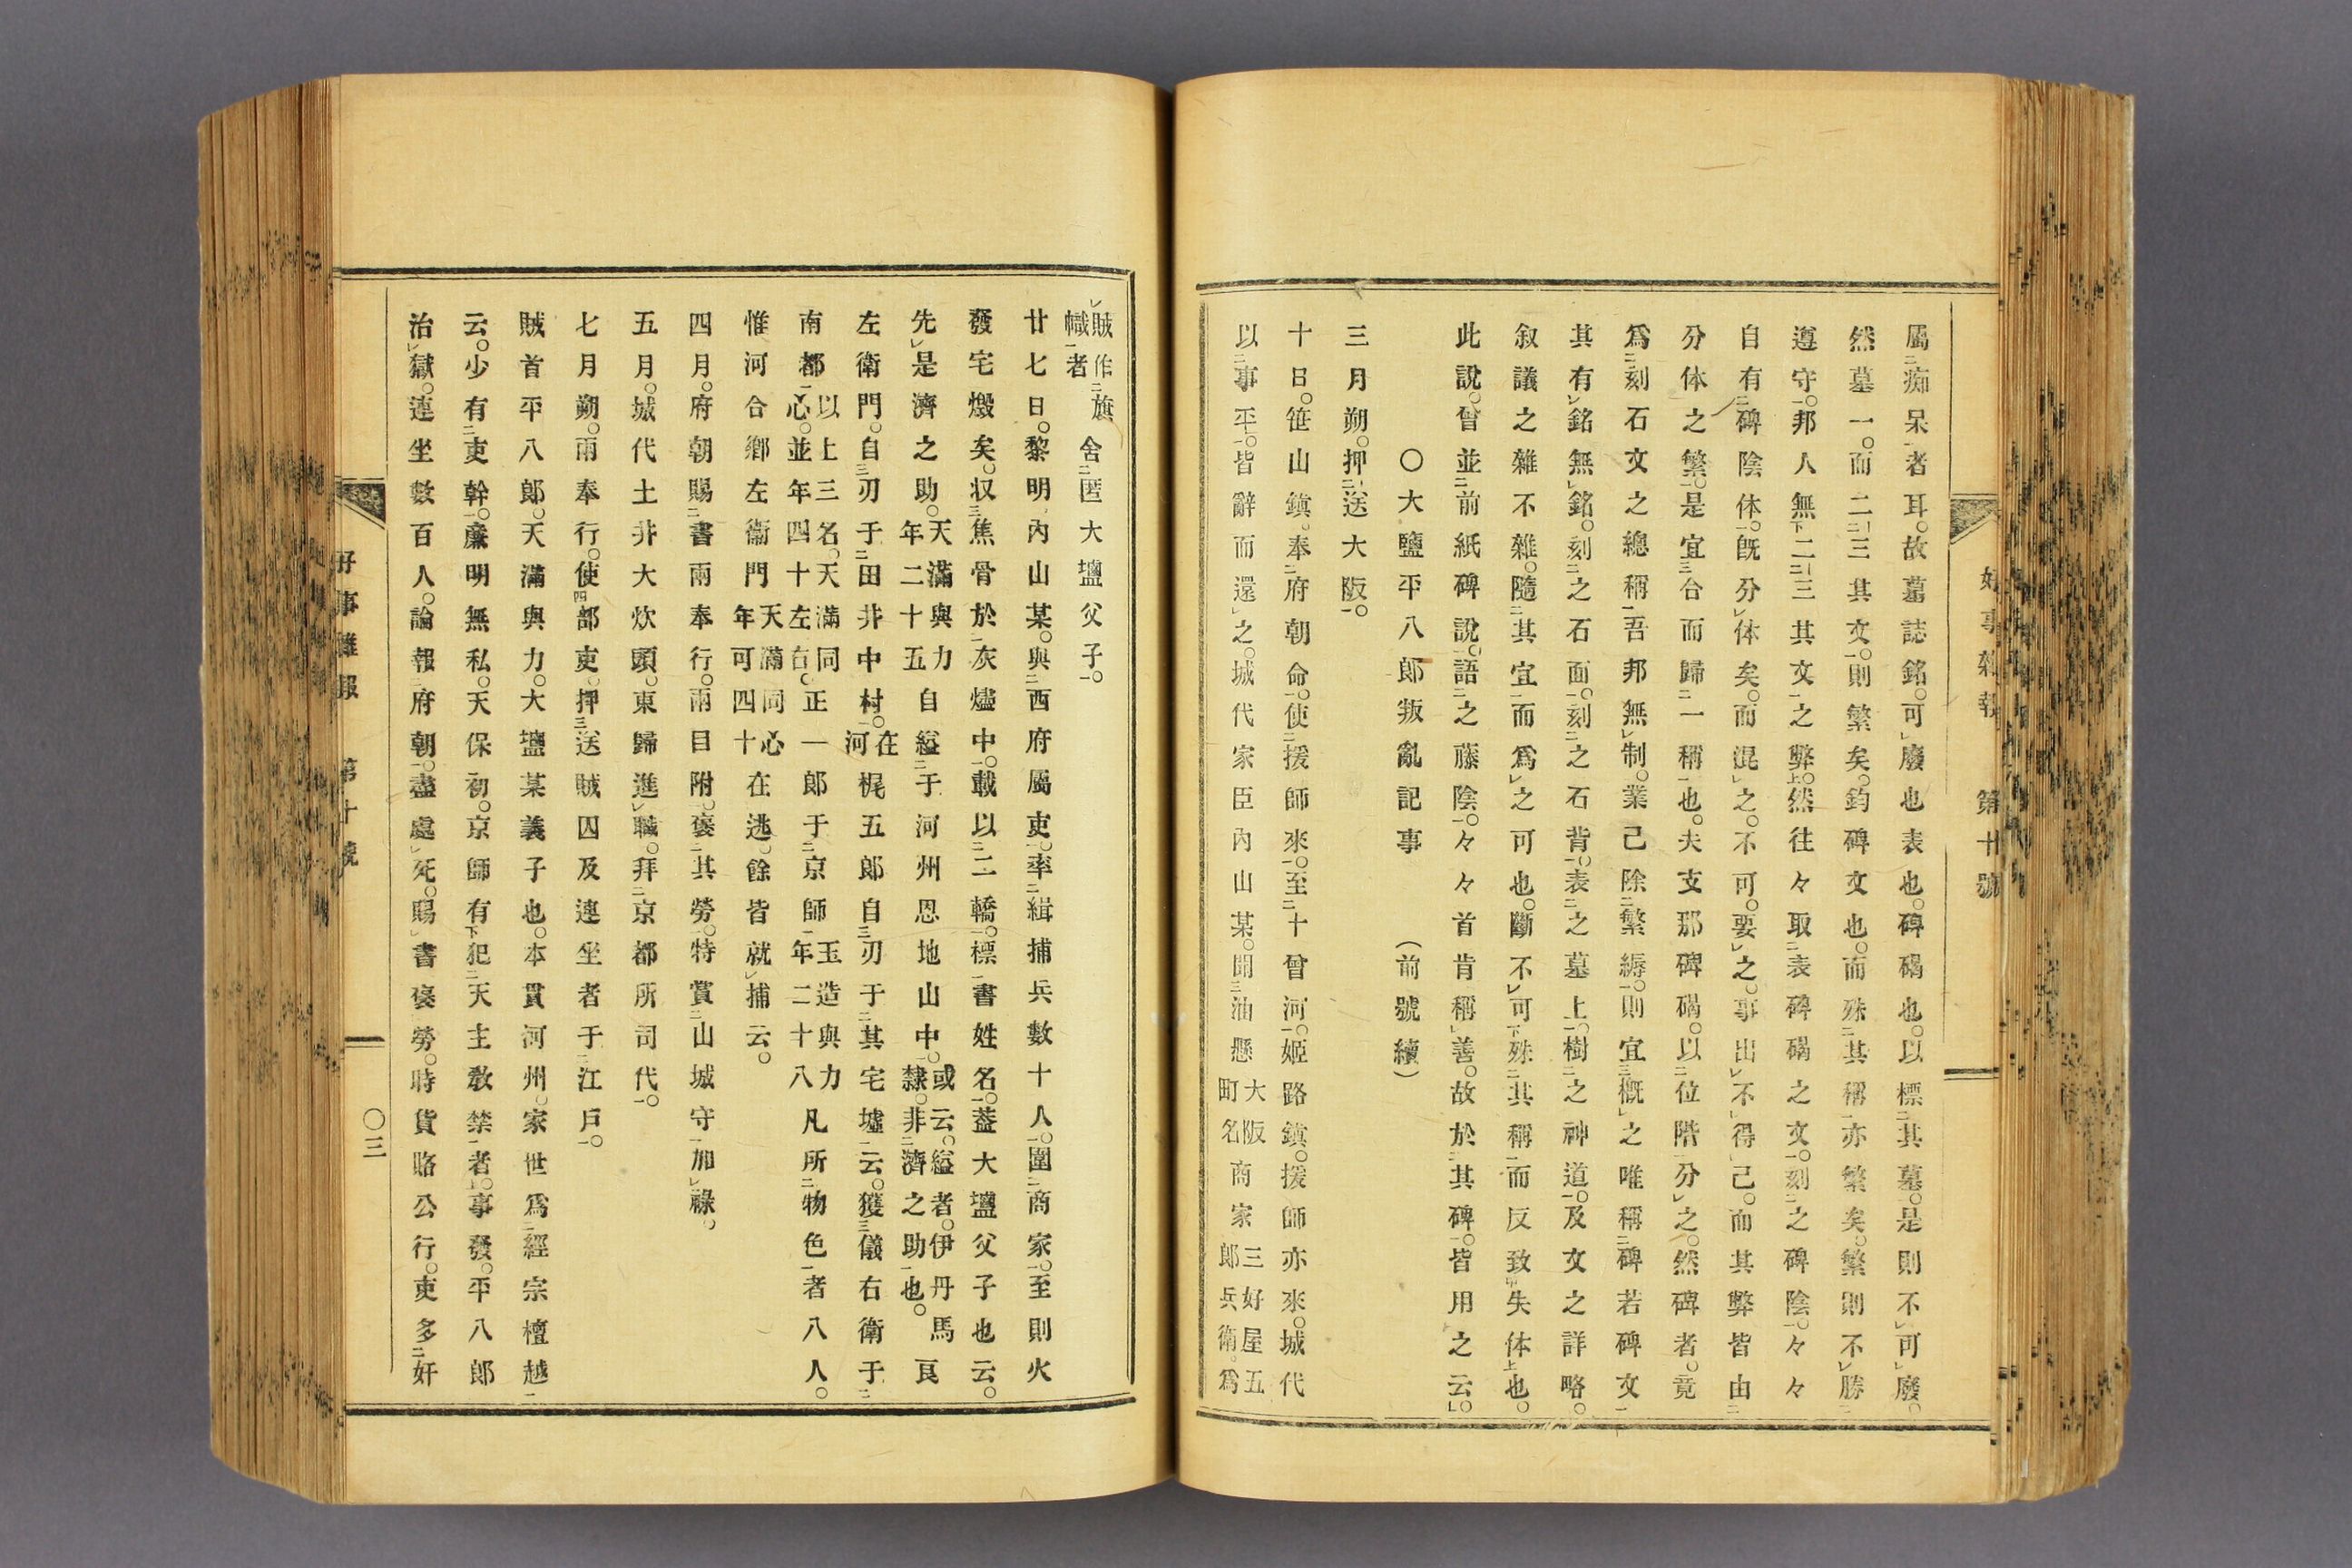 好事雜報 第十號
屬痴呆者耳。故墓誌銘。可廢也表也。碑碣也。以標其墓。是則不可廢。
然墓一。而二三其文。則繁矣。鈞碑文也。而殊其稱亦繁矣。繁則不勝
遵守。邦人無二三其文之弊。然往々取表碑碣之文。刻之碑陰。々々
自有碑陰体。既分体矣。而混之。不可。要之。事出不得已。而其弊皆由
分体之繁。是宜合而歸一稱也。夫支那碑碣。以位階分之。然碑者。竟
爲刻石文之總稱。吾邦無制。業已除繁縟。則宜概之唯稱碑若碑文
其有銘無銘。刻之石面。刻之石背。表之墓上。樹之神道。及文之詳略。
叙議之雜不雜。隨其宜而爲之可也。斷不可殊其稱而反致失体也。
此說。曾並前紙碑說。語之藤陰。々々首肯稱善。故於其碑。皆用之云。
〇大鹽平八郎叛亂記事 (前號續)
三月朔。押送大阪。
十日。笹山鎭。奉府朝命。使援師來。至十曾河。姬路鎭。援師亦來。城代
以事平。皆辭而還之。城代家臣內山某。聞油懸大阪町名商家三好屋五郎兵衛。爲
賊作旗幟者舍匿大塩父子。
廿七日。黎明內山某。與西府屬吏。率緝捕兵數十人。圍商家。至則火
發宅燬矣。収焦骨於灰燼中。載以二轎。標書姓名。葢大塩父子也云。
先是濟之助。天滿與力年二十五自縊于河州恩地山中。或云。縊者。伊丹馬隸。非濟之助也。良
左衛門。自刃于田井中村。在河梶五郎自刃于其宅墟云。獲儀右衛于
南都以上三名。天滿同心。並年四十左右。正一郎于京師玉造與力年二十八凡所物色者八人。
惟河合鄉左衞門天滿同心年可四十在逃。餘皆就捕云。
四月。府朝賜書兩奉行。兩目附。褒其勞。特賞山城守加祿。
五月。城代土井大炊頭。東歸進職。拜京都所司代。
七月朔。兩奉行。使部吏。押送賊囚及連坐者于江戶。
賊首平八郎。天滿與力。大塩某義子也。本貫河州。家世爲經宗檀越
云。少有吏幹。廉明無私。天保初。京師有犯天主敎禁者。事發。平八郎
治獄。連坐數百人。論報府朝。盡處死。賜書褒勞。時貨賂公行。吏多奸
好事雜報 第十號
〇三